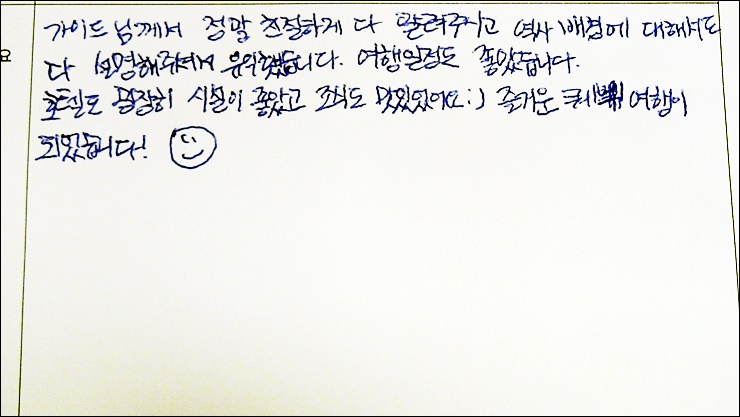 가이드님께서 정말 친절하게 다 알려주시고 역사 배경에 대해서도
요
다 설명해주셔서 유익했습니다. 여행일정도 좋았습니다.
호텔도 굉장히 시설이 좋았고 조식도 맛있었어요:) 즐거운 퀘벡 여행이
되었습니다!